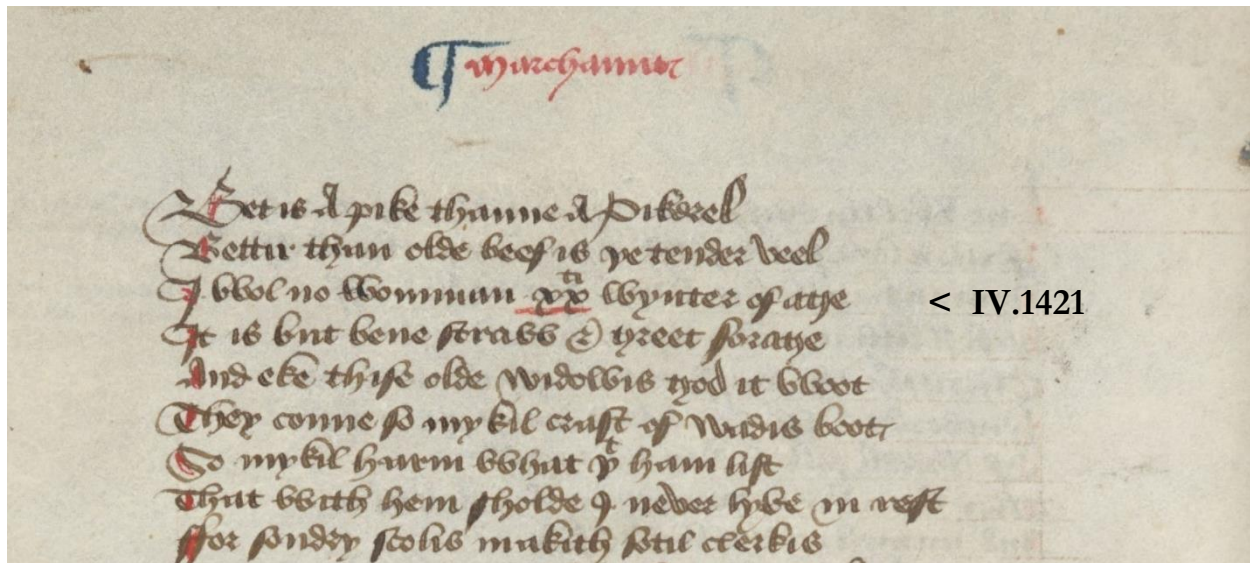 ¶ Marchaunt
Bet is A pike thanne A Pikerel
Bettir than olde beef is þe tender veel
I wol no womman xxti wynter of age
< IV.1421
It is but bene straw & greet forage
And eke thise olde widowis god it woot
They conne so mykil craft of wadis boot
So mykil harm what þt ham list
That with hem sholde I never lyve in rest
ffor sondry scolis makith sotil clerkis